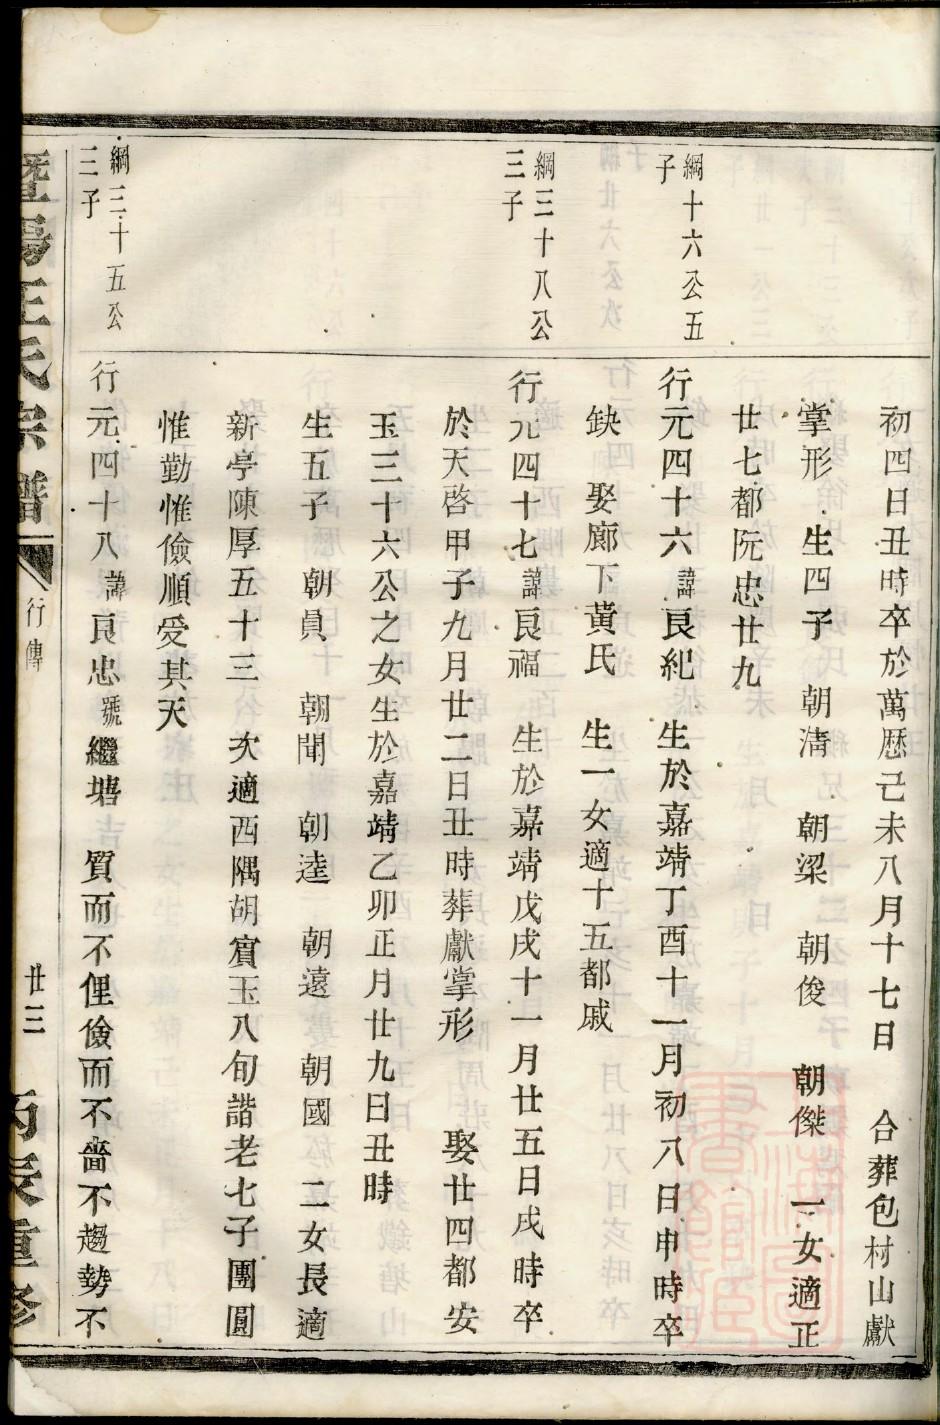 初四日丑時卒於萬歷己未八月十七日　合葬包村山獻
掌形　生四子　朝清　朝梁　朝俊　朝傑　一女適正
廿七都阮忠廿九
綱十六公五
子
行元四十六諱良紀　生於嘉靖丁酉十一月初八日申時卒
缺　娶廊下黃氏　生一女適十五都戚
綱三十八公
三子
行元四十七諱良福　生於嘉靖戊戌十一月廿五日戌時卒
於天啓甲子九月廿二日丑時葬獻掌形　娶廿四都安
玉三十六公之女生於嘉靖乙卯正月廿九日丑時
生五子　朝員　朝聞　朝逵　朝遠　朝國　二女長適
新亭陳厚五十三　次適西隅胡賓玉八旬諧老七子團圓
惟勤惟儉順受其天
綱三十五公
三子
行元四十八諱良忠號繼塘　質而不俚儉而不嗇不趨勢不
暨陽王氏宗譜
行傳
廿三
丙辰重修